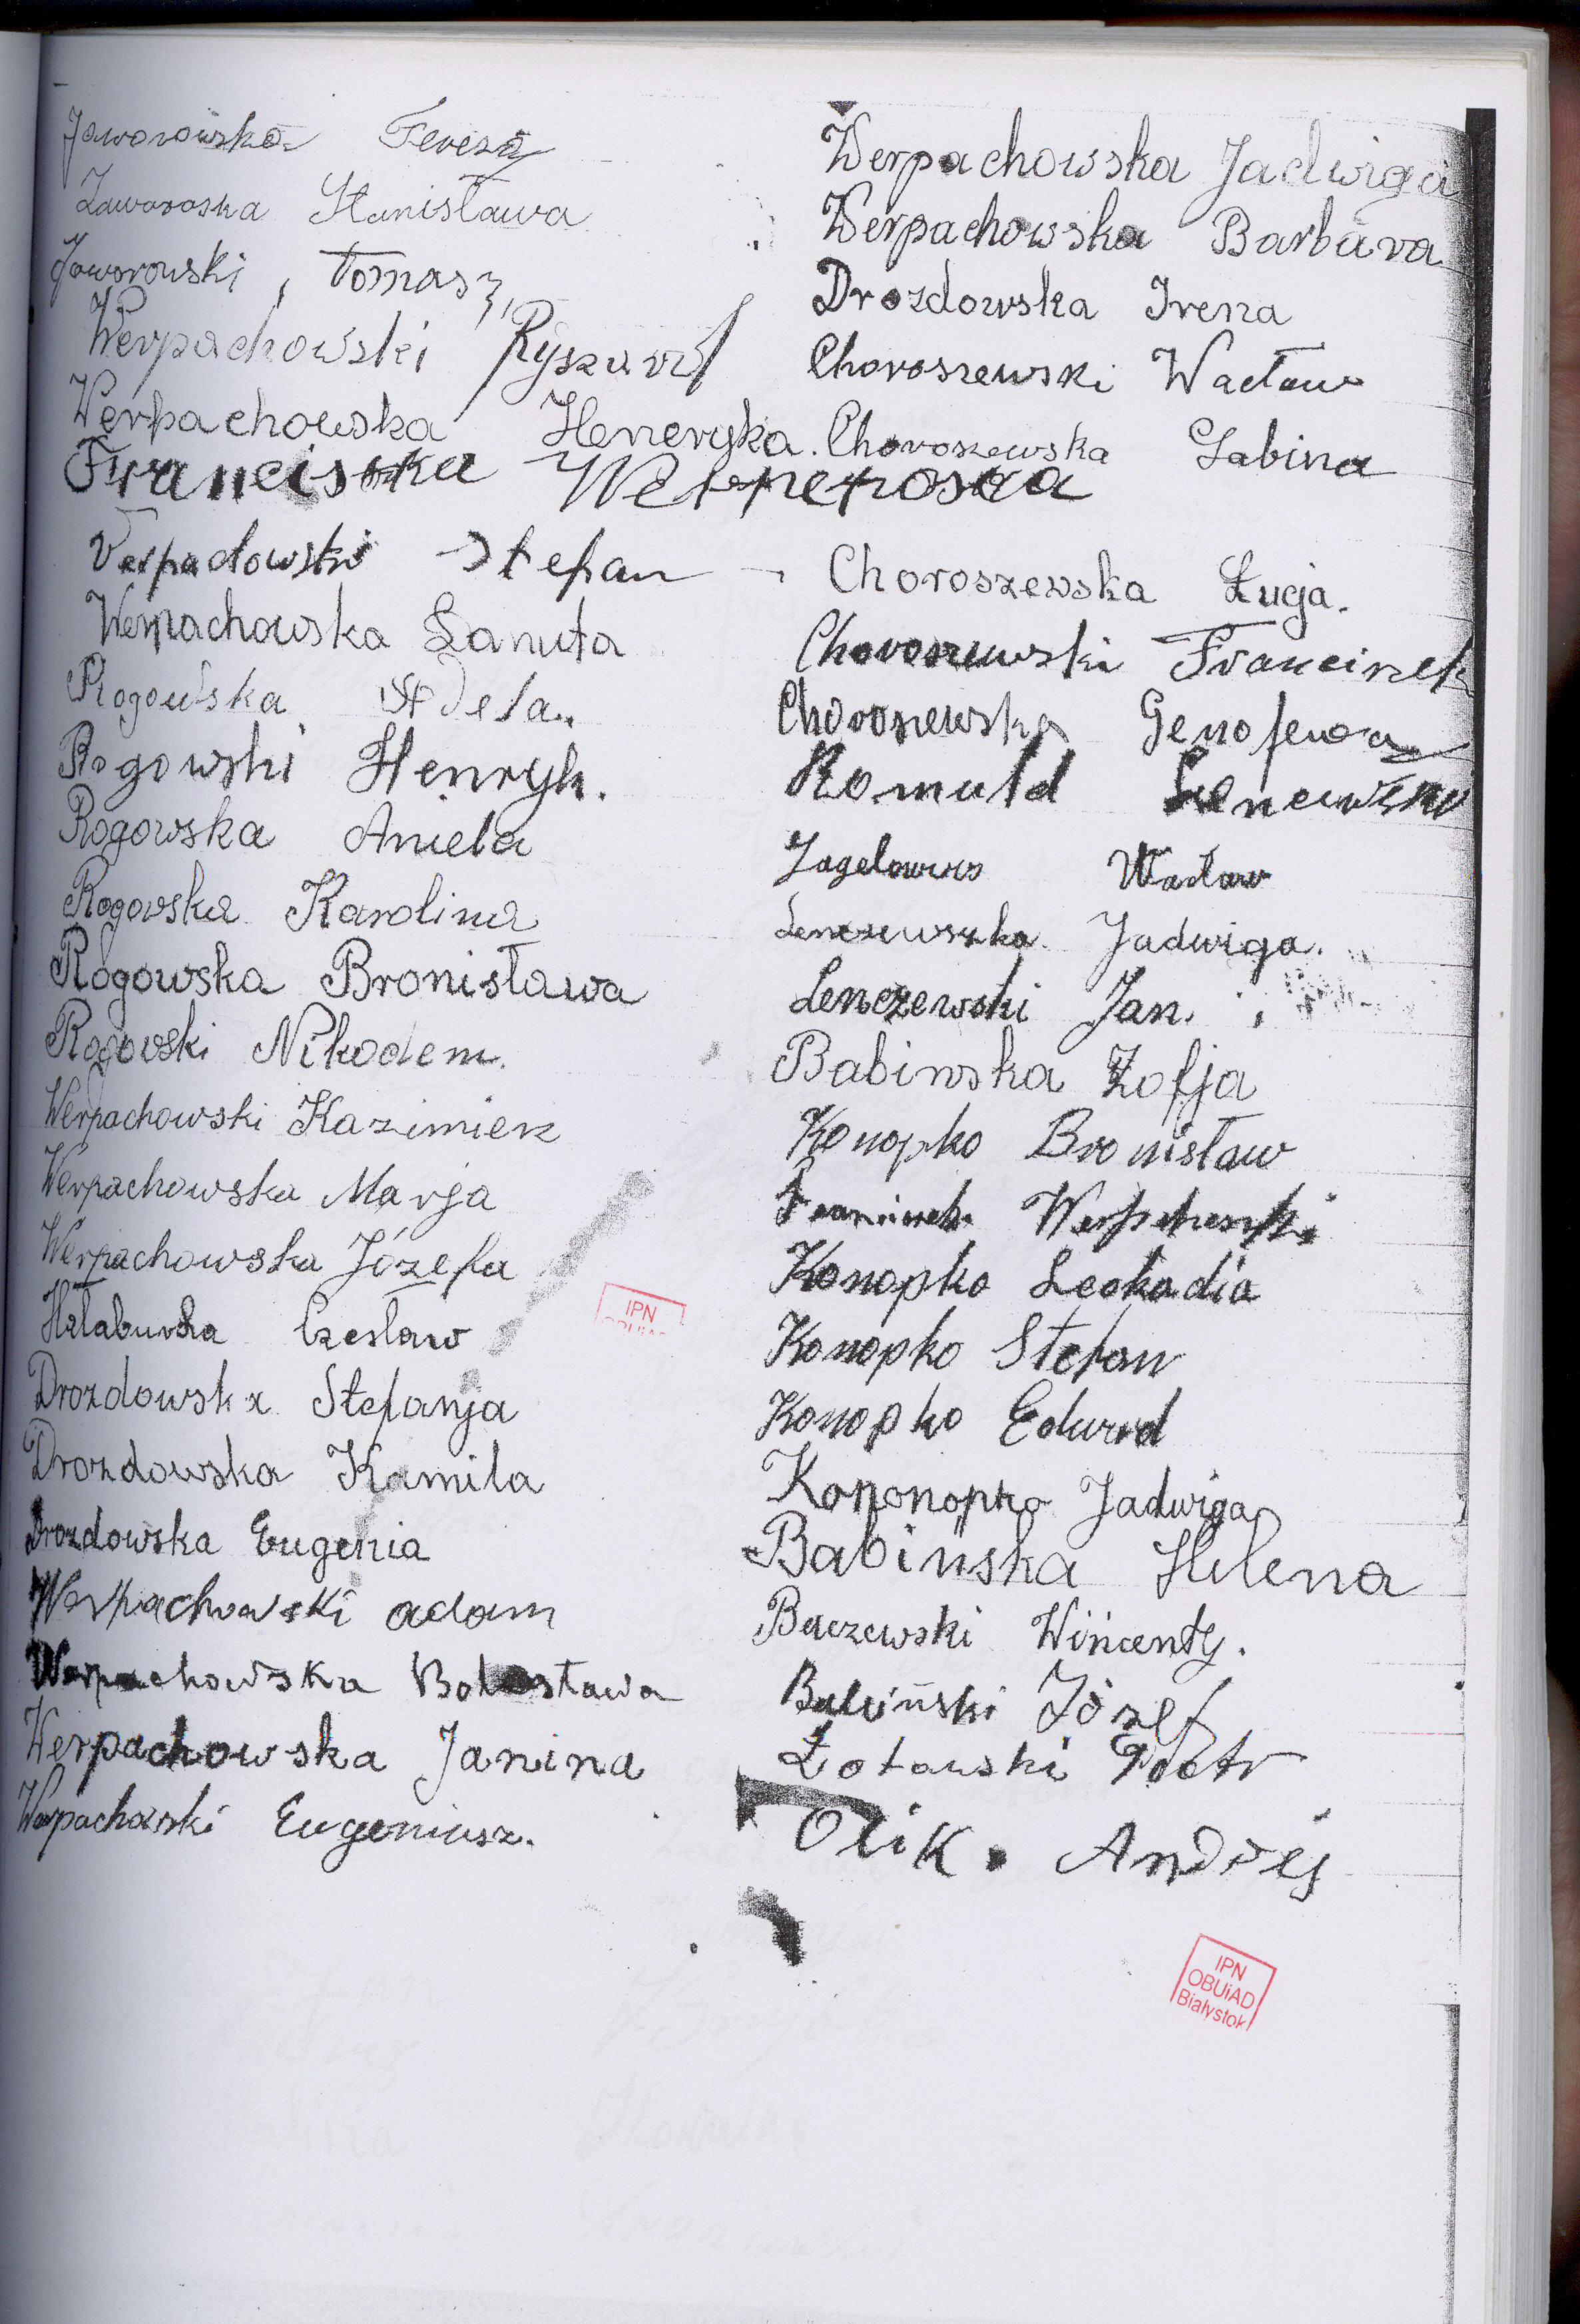 Jaworowska Teresa
Zaworoska Stanisława
Jaworowski, Tomasz
Werpachowski Ryszard
Werpachowska Heneryka.
Franciszka
Stefan
Werpachowska Danuta
Rogowska Adela
Rogowski Henryk.
Rogowska Aniela
Rogowska Karolina
Rogowska Bronisława
Rogowski Nikodem.
Werpachowski Kazimierz
Werpachowska Marja
Werpachowska Józefa
Czesław
Drozdowska Stefanja
Drozdowska Kamila
Drozdowska Eugenia
Werpachowski adam
Werpachowska Bolesława
Werpachowska Janina
Werpachowski Eugeniusz.
IPN
Werpachowska Jadwiga
Werpachowska Barbara
Drozdowska Irena
Choroszewski Wacław
Choroszewska Sabina
Choroszewska Łucja.
Choroszewski Franciszek
Choroszewska Genofewa
Romuld
Wacław
Jadwiga.
Lenczewski Jan.
Babinska Zofja
Konopko Bronisław
Konopko Leokadia
Konopko Stefan
Konopko Edward
Kononopko Jadwiga
Babinska Helena
Baczewski Wincenty.
Babiński Józef
Piotr
Olik. Andrej
IPN
OBUiAD
Białystok